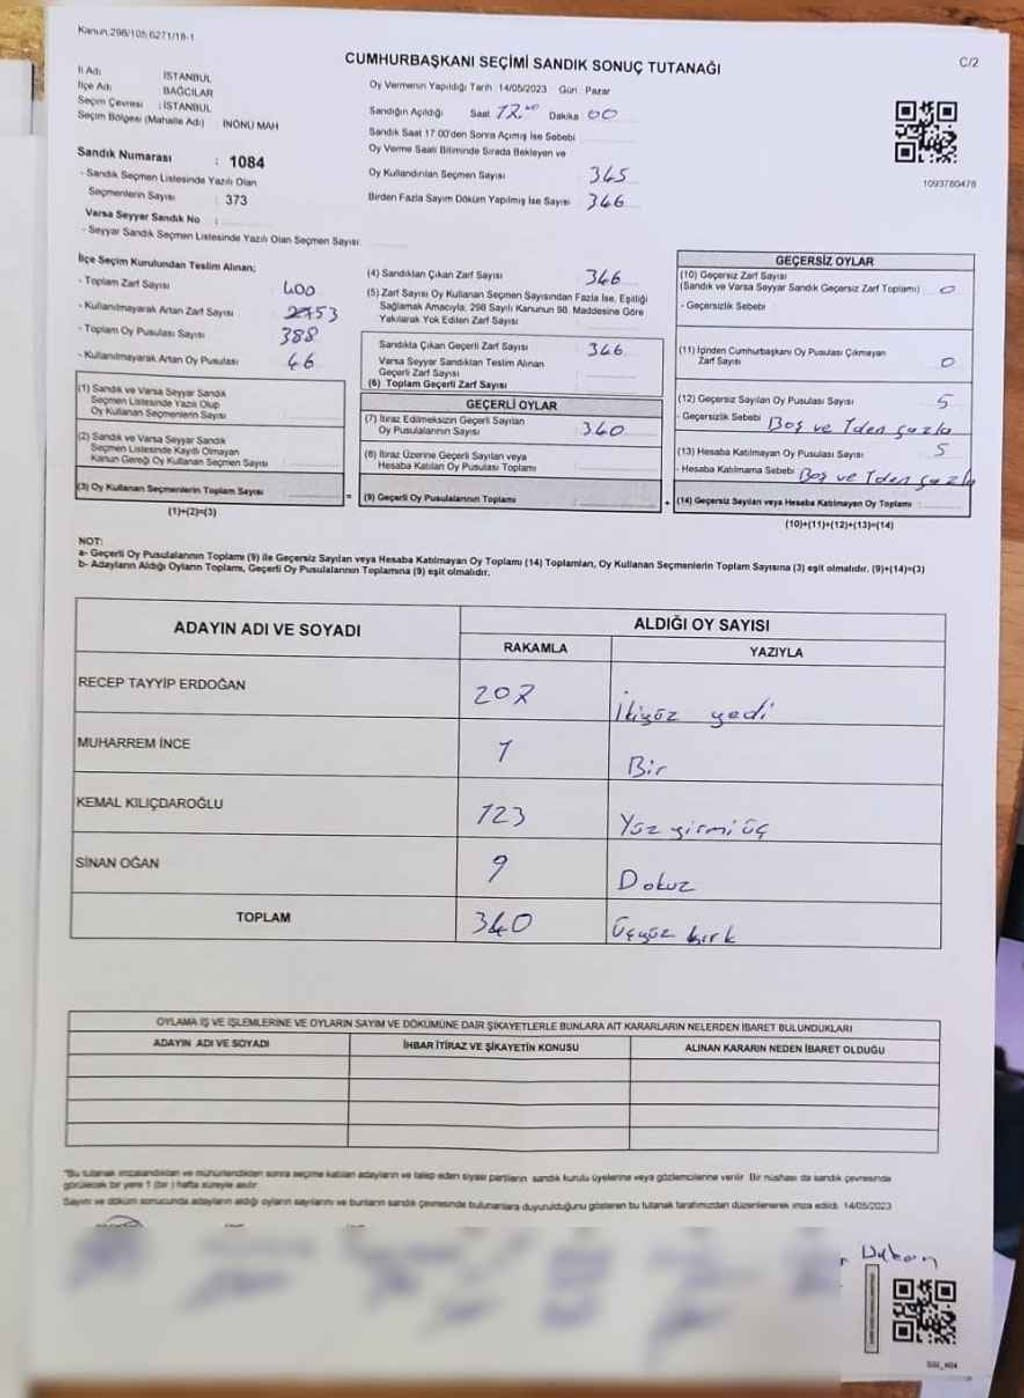 Kanun.298/105,6271/18-1
C/2
CUMHURBAŞKANI SEÇİMİ SANDIK SONUÇ TUTANAĞI
İl Adı : İSTANBUL
İlçe Adı : BAĞCILAR
Seçim Çevresi : İSTANBUL
Seçim Bölgesi (Mahalle Adı) : İNÖNÜ MAH
Sandık Numarası : 1084
- Sandık Seçmen Listesinde Yazılı Olan
Seçmenlerin Sayısı : 373
Varsa Seyyar Sandık No :
- Seyyar Sandık Seçmen Listesinde Yazılı Olan Seçmen Sayısı:
Oy Vermenin Yapıldığı Tarih 14/05/2023 Gün Pazar
Sandığın Açıldığı Saat Dakika 00
Sandık Saat 17:00'den Sonra Açımış İse Sebebi
Oy Verme Saati Bitiminde Sırada Bekleyen ve
Oy Kullandırılan Seçmen Sayısı 345
Birden Fazla Sayım Döküm Yapılmış İse Sayısı 346
1093780478
İlçe Seçim Kurulundan Teslim Alınan;
- Toplam Zarf Sayısı 400
- Kullanılmayarak Artan Zarf Sayısı
- Toplam Oy Pusulası Sayısı 388
- Kullanılmayarak Artan Oy Pusulası 46
(1) Sandık ve Varsa Seyyar Sandık
Seçmen Listesinde Yazılı Olup
Oy Kullanan Seçmenlerin Sayısı
(2) Sandık ve Varsa Seyyar Sandık
Seçmen Listesinde Kayıtlı Olmayan
Kanun Gereği Oy Kullanan Seçmen Sayısı
(3) Oy Kullanan Seçmenlerin Toplam Sayısı
(1)+(2)=(3)
(4) Sandıktan Çıkan Zarf Sayısı 346
(5) Zarf Sayısı Oy Kullanan Seçmen Sayısından Fazla İse, Eşitliği
Sağlamak Amacıyla, 298 Sayılı Kanunun 98. Maddesine Göre
Yakılarak Yok Edilen Zarf Sayısı
Sandıkta Çıkan Geçerli Zarf Sayısı 346
Varsa Seyyar Sandıktan Teslim Alınan
Geçerli Zarf Sayısı
(6) Toplam Geçerli Zarf Sayısı
GEÇERLİ OYLAR
(7) İtiraz Edilmeksizin Geçerli Sayılan
Oy Pusulalarının Sayısı 340
(8) İtiraz Üzerine Geçerli Sayılan veya
Hesaba Katılan Oy Pusulası Toplamı
= (9) Geçerli Oy Pusulalarının Toplamı +
GEÇERSİZ OYLAR
(10) Geçersiz Zarf Sayısı
(Sandık ve Varsa Seyyar Sandık Geçersiz Zarf Toplamı) 0
- Geçersizlik Sebebi
(11) İçinden Cumhurbaşkanı Oy Pusulası Çıkmayan
Zarf Sayısı 0
(12) Geçersiz Sayılan Oy Pusulası Sayısı 5
- Geçersizlik Sebebi Boş ve 1den fazla
(13) Hesaba Katılmayan Oy Pusulası Sayısı 5
- Hesaba Katılmama Sebebi Boş ve 1den fazla
(14) Geçersiz Sayılan veya Hesaba Katılmayan Oy Toplamı
(10)+(11)+(12)+(13)=(14)
NOT:
a- Geçerli Oy Pusulalarının Toplamı (9) ile Geçersiz Sayılan veya Hesaba Katılmayan Oy Toplamı (14) Toplamları, Oy Kullanan Seçmenlerin Toplam Sayısına (3) eşit olmalıdır. (9)+(14)=(3)
b- Adayların Aldığı Oyların Toplamı, Geçerli Oy Pusulalarının Toplamına (9) eşit olmalıdır.
ADAYIN ADI VE SOYADI ALDIĞI OY SAYISI
RAKAMLA YAZIYLA
RECEP TAYYİP ERDOĞAN 207 İkiyüz yedi
MUHARREM İNCE 1 Bir
KEMAL KILIÇDAROĞLU 123 Yüz yirmi üç
SİNAN OĞAN 9 Dokuz
TOPLAM 340 Üçyüz kırk
OYLAMA İŞ VE İŞLEMLERİNE VE OYLARIN SAYIM VE DÖKÜMÜNE DAİR ŞİKAYETLERLE BUNLARA AİT KARARLARIN NELERDEN İBARET BULUNDUKLARI
ADAYIN ADI VE SOYADI İHBAR İTİRAZ VE ŞİKAYETİN KONUSU ALINAN KARARIN NEDEN İBARET OLDUĞU
"Bu tutanak imzalandıktan ve mühürlendikten sonra seçime katılan adayların ve talep eden siyasi partilerin sandık kurulu üyelerine veya gözlemcilerine verilir. Bir nüshası da sandık çevresinde
görülecek bir yere 1 (bir) hafta süreyle asılır.
Sayım ve döküm sonucunda adayların aldığı oyların sayılarını ve bunların sandık çevresinde bulunanlara duyurulduğunu gösteren bu tutanak tarafımızdan düzenlenerek imza edildi. 14/05/2023